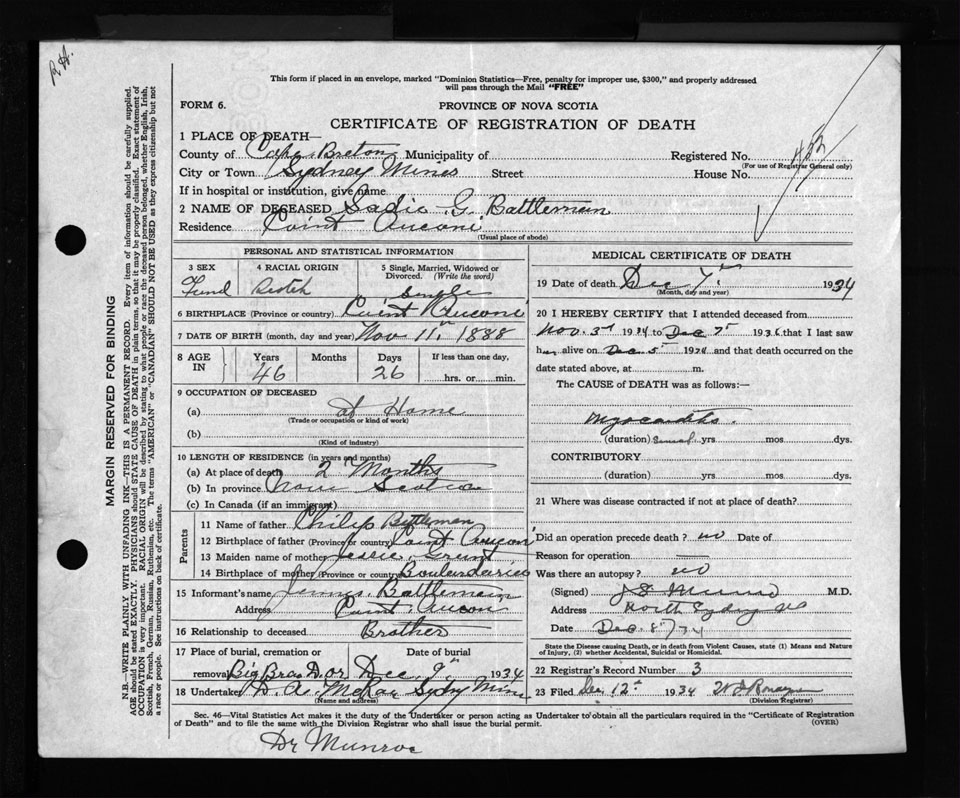 R.H.
This form if placed in an envelope, marked "Dominion Statistics—Free, penalty for improper use, $300," and properly addressed
will pass through the Mail "FREE"
FORM 6.
PROVINCE OF NOVA SCOTIA
CERTIFICATE OF REGISTRATION OF DEATH
1 PLACE OF DEATH—
County of Cape Breton Municipality of Registered No.
(For use of Registrar General only)
City or Town Sydney Mines Street House No.
If in hospital or institution, give name
2 NAME OF DECEASED Sadie G. Battleman
Residence Point Aconi
(Usual place of abode)
MARGIN RESERVED FOR BINDING
N.B.—WRITE PLAINLY WITH UNFADING INK—THIS IS A PERMANENT RECORD. Every item of information should be carefully supplied.
AGE should be stated EXACTLY. PHYSICIANS should STATE CAUSE OF DEATH in plain terms, so that it may be properly classified. Exact statement of
OCCUPATION is very important. RACIAL ORIGIN will be described by stating to what people or race the deceased person belonged, whether English, Irish,
Scottish, French, German, Russian, Ruthenian, etc. The terms "AMERICAN" or "CANADIAN" SHOULD NOT BE USED as they express citizenship but not
a race or people. See instructions on back of certificate.
PERSONAL AND STATISTICAL INFORMATION
3 SEX 4 RACIAL ORIGIN 5 Single, Married, Widowed or
Divorced. (Write the word)
Single
6 BIRTHPLACE (Province or country) Point Aconi
7 DATE OF BIRTH (month, day and year) Nov 11th 1888
8 AGE IN Years Months Days If less than one day,
46 26 hrs. or min.
9 OCCUPATION OF DECEASED
(a) at Home
(Trade or occupation or kind of work)
(b)
(Kind of industry)
10 LENGTH OF RESIDENCE (in years and months)
(a) At place of death 2 Months
(b) In province Nova Scotia
(c) In Canada (if an immigrant)
Parents
11 Name of father Philip Battleman
12 Birthplace of father (Province or country) Point Aconi
13 Maiden name of mother Jessie Grant
14 Birthplace of mother (Province or country) Boularderie
15 Informant's name James Battleman
Address Point Aconi
16 Relationship to deceased Brother
17 Place of burial, cremation or Date of burial
removal Big Bras D'or Dec 9th 1934
18 Undertaker D. A. McKay Sydney Mines
(Name and address)
MEDICAL CERTIFICATE OF DEATH
19 Date of death Dec 7th 1934
(Month, day and year)
20 I HEREBY CERTIFY that I attended deceased from
Nov. 3rd 1934 to Dec 7th 1934 that I last saw
her alive on Dec. 5th 1934 and that death occurred on the
date stated above, at m.
The CAUSE OF DEATH was as follows:—
Myocarditis.
(duration) Several yrs mos dys.
CONTRIBUTORY
(duration) yrs mos dys.
21 Where was disease contracted if not at place of death?
Did an operation precede death? no Date of
Reason for operation
Was there an autopsy? no
(Signed) Munro M.D.
Address North Sydney NS
Date Dec. 8th/34
State the Disease causing Death, or in death from Violent Causes, state (1) Means and Nature
of Injury, (2) whether Accidental, Suicidal or Homicidal.
22 Registrar's Record Number 3
23 Filed Dec 12th 1934
(Division Registrar)
Sec. 46—Vital Statistics Act makes it the duty of the Undertaker or person acting as Undertaker to obtain all the particulars required in the "Certificate of Registration
of Death" and to file the same with the Division Registrar who shall issue the burial permit.
(OVER)
Dr Munroe